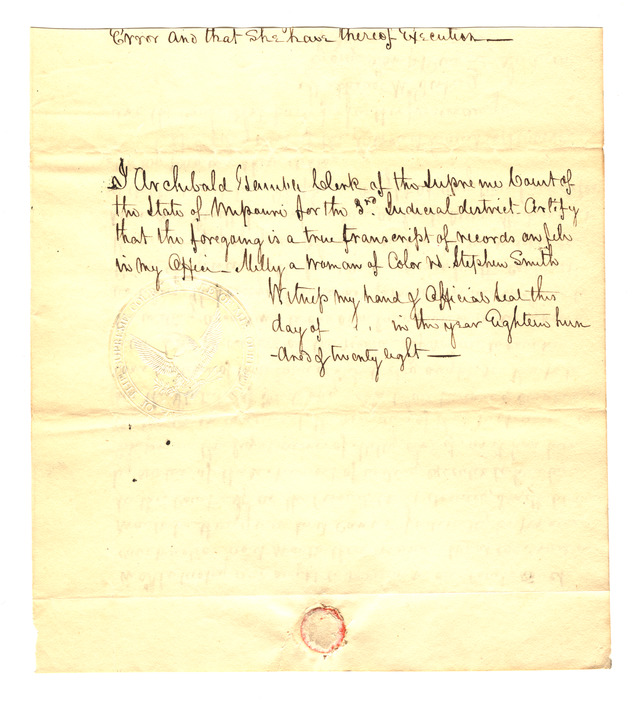 Error and that she have thereof Execution —
I Archibald Gamble Clerk of the Supreme Court of
the State of Missouri for the 3rd Judicial district Certify
that the foregoing is a true transcript of records on file
in my office — Milly a woman of Color vs. Stephen Smith
Witness my hand & Official Seal this
day of in the year Eighteen hun
-dred & twenty eight —
THE SUPREME COURT